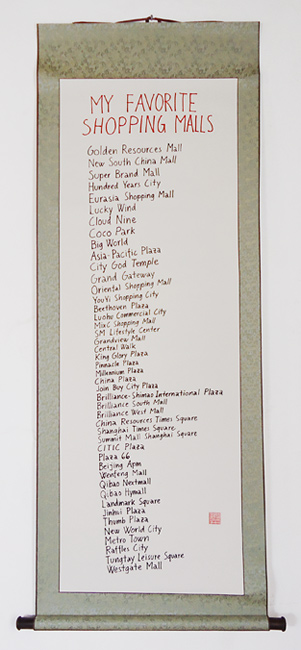 MY FAVORITE
SHOPPING MALLS
Golden Resources Mall
New South China Mall
Super Brand Mall
Hundred Years City
Eurasia Shopping Mall
Lucky Wind
Cloud Nine
Coco Park
Big World
Asia-Pacific Plaza
City God Temple
Grand Gateway
Oriental Shopping Mall
YouYi Shopping City
Beethoven Plaza
Luohu Commercial City
MixC Shopping Mall
SM Lifestyle Center
Grandview Mall
Central Walk
King Glory Plaza
Pinnacle Plaza
Millennium Plaza
China Plaza
Join Buy City Plaza
Brilliance-Shimao International Plaza
Brilliance South Mall
Brilliance West Mall
China Resources Times Square
Shanghai Times Square
Summit Mall Shanghai Square
CITIC Plaza
Plaza 66
Beijing Apm
Wenfeng Mall
Qibao Nextmall
Qibao Hymall
Landmark Square
Jinhui Plaza
Thumb Plaza
New World City
Metro Town
Raffles City
Tungtay Leisure Square
Westgate Mall